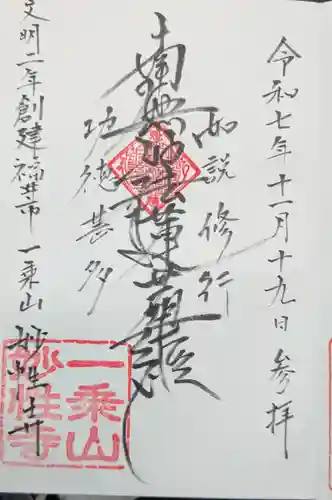 令和七年十一月十九日 参拝
如説修行
南無妙法蓮華経
功徳甚多
文明二年創建 福井市 一乗山 妙性寺
一乗山
妙性寺